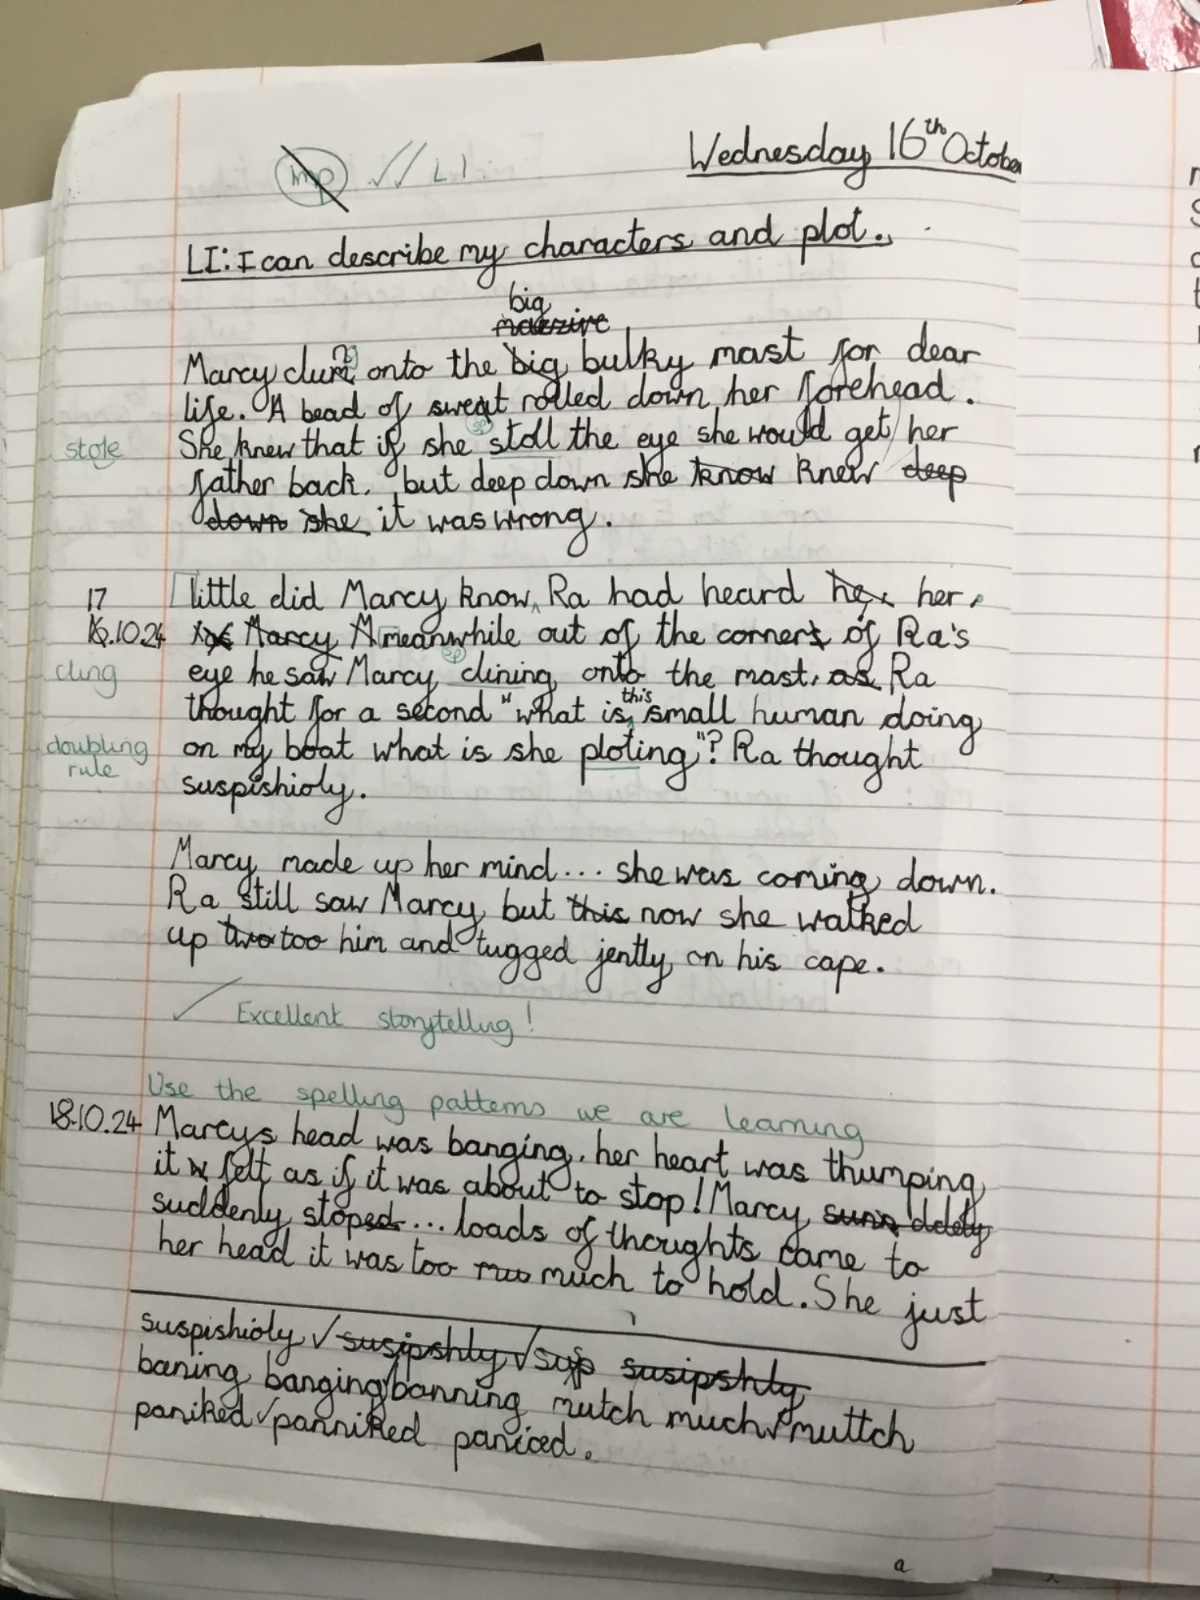 imp ✓✓ LI
Wednesday 16th October
LI: I can describe my characters and plot.
big
massive
Marcy clun onto the big bulky mast for dear
life. A bead of sweat rolled down her forehead.
stole
She knew that if she stoll the eye she would get her
father back. but deep down she know knew deep
down she it was wrong.
17
little did Marcy know, Ra had heard her her.
16.10.24
Marcy M meanwhile out of the corners of Ra's
sp
cling
eye he saw Marcy clining onto the mast. as Ra
this
thought for a second "what is small human doing
doubling
rule
on my boat what is she ploting"? Ra thought
suspishioly.
Marcy made up her mind... she was coming down.
Ra still saw Marcy but this now she walked
up two too him and tugged jently on his cape.
✓ Excellent storytelling!
Use the spelling patterns we are learning
18.10.24
Marcys head was banging. her heart was thumping
it w felt as if it was about to stop! Marcy
suddenly stoped... loads of thoughts came to
her head it was too muc much to hold. She just
suspishioly ✓ susipshly ✓ susp susipshly
baning banging banning mutch much ✓ muttch
paniked ✓ panniked paniced.
a